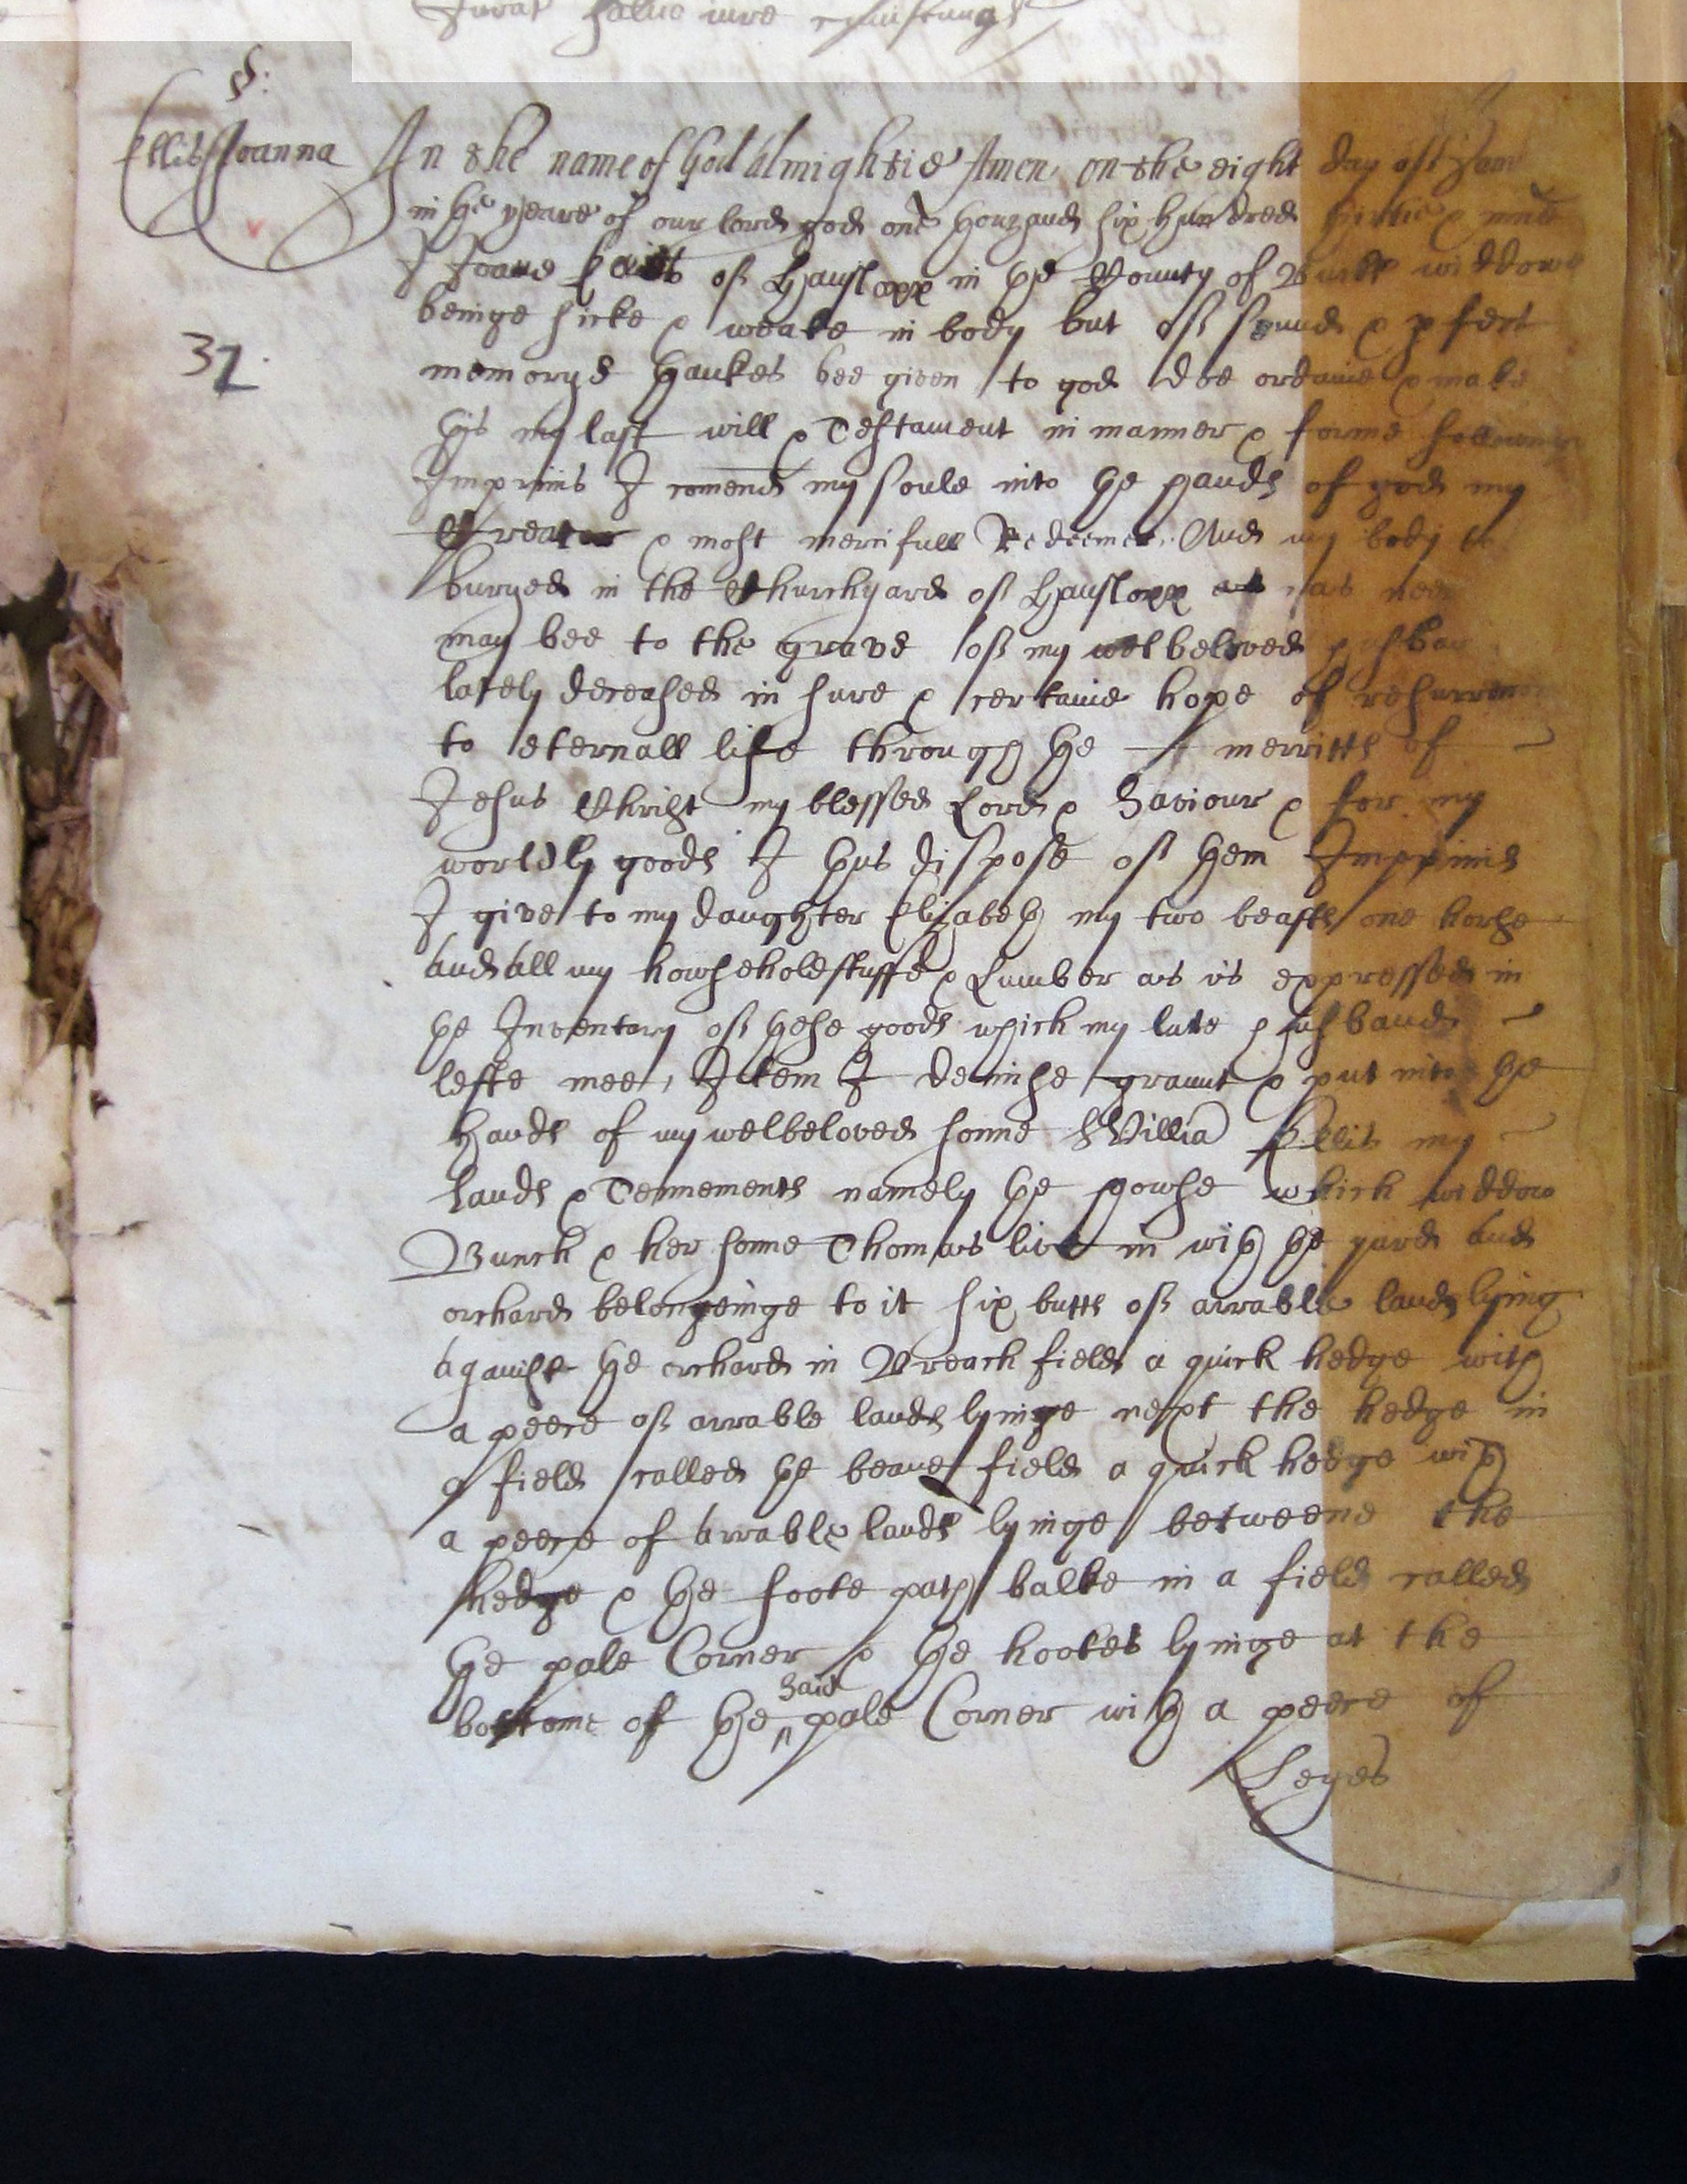 §:
Ellis Joanna
In the name of God almightie Amen, on the eight day of
in the yeare of our lord god one thousand six hundred thirtie & nine
I Joane Ellis of Hanslopp in the County of Buck widdowe
beinge sicke & weake in body but of sound & pfect
memorye thankes bee given to god doe ordaine & make
32
this my last will & Testament in manner & forme followinge
Imprimis I comend my soule into the hands of god my
Creator & most mercifull Redeemer, And my body to
buryed in the Churchyard of Hanslopp as
may bee to the grave of my welbeloved
lately deceased in sure & certaine hope of
to eternall life through the merritts of
Jesus Christ my blessed Lord & Saviour & for my
worldly goods I thus dispose of them Imprimis
I give to my daughter Elizabeth my two beasts one horse
and all my howseholdstuffe & Lumber as is expressed in
the Inventary of those goods which my late husband
lefte mee, Item I deminse graunt & put into the
hands of my welbeloved sonne Willia Ellis my
lands & Tennements namely the howse which widdow
Bunch & her sonne Thomas live in with the yard and
orchard belongeinge to it six butts of arrable lands lying
against the orchard in Breach field a quick hedge with
a peece of arrable lands lyinge next the hedge in
a field called the beane field a quick hedge with
a peece of arrable lands lyinge betweene the
hedge & the foote path balke in a field called
the pale Corner & the hookes lyinge at the
bottome of the said pale Corner with a peece of
Leyes